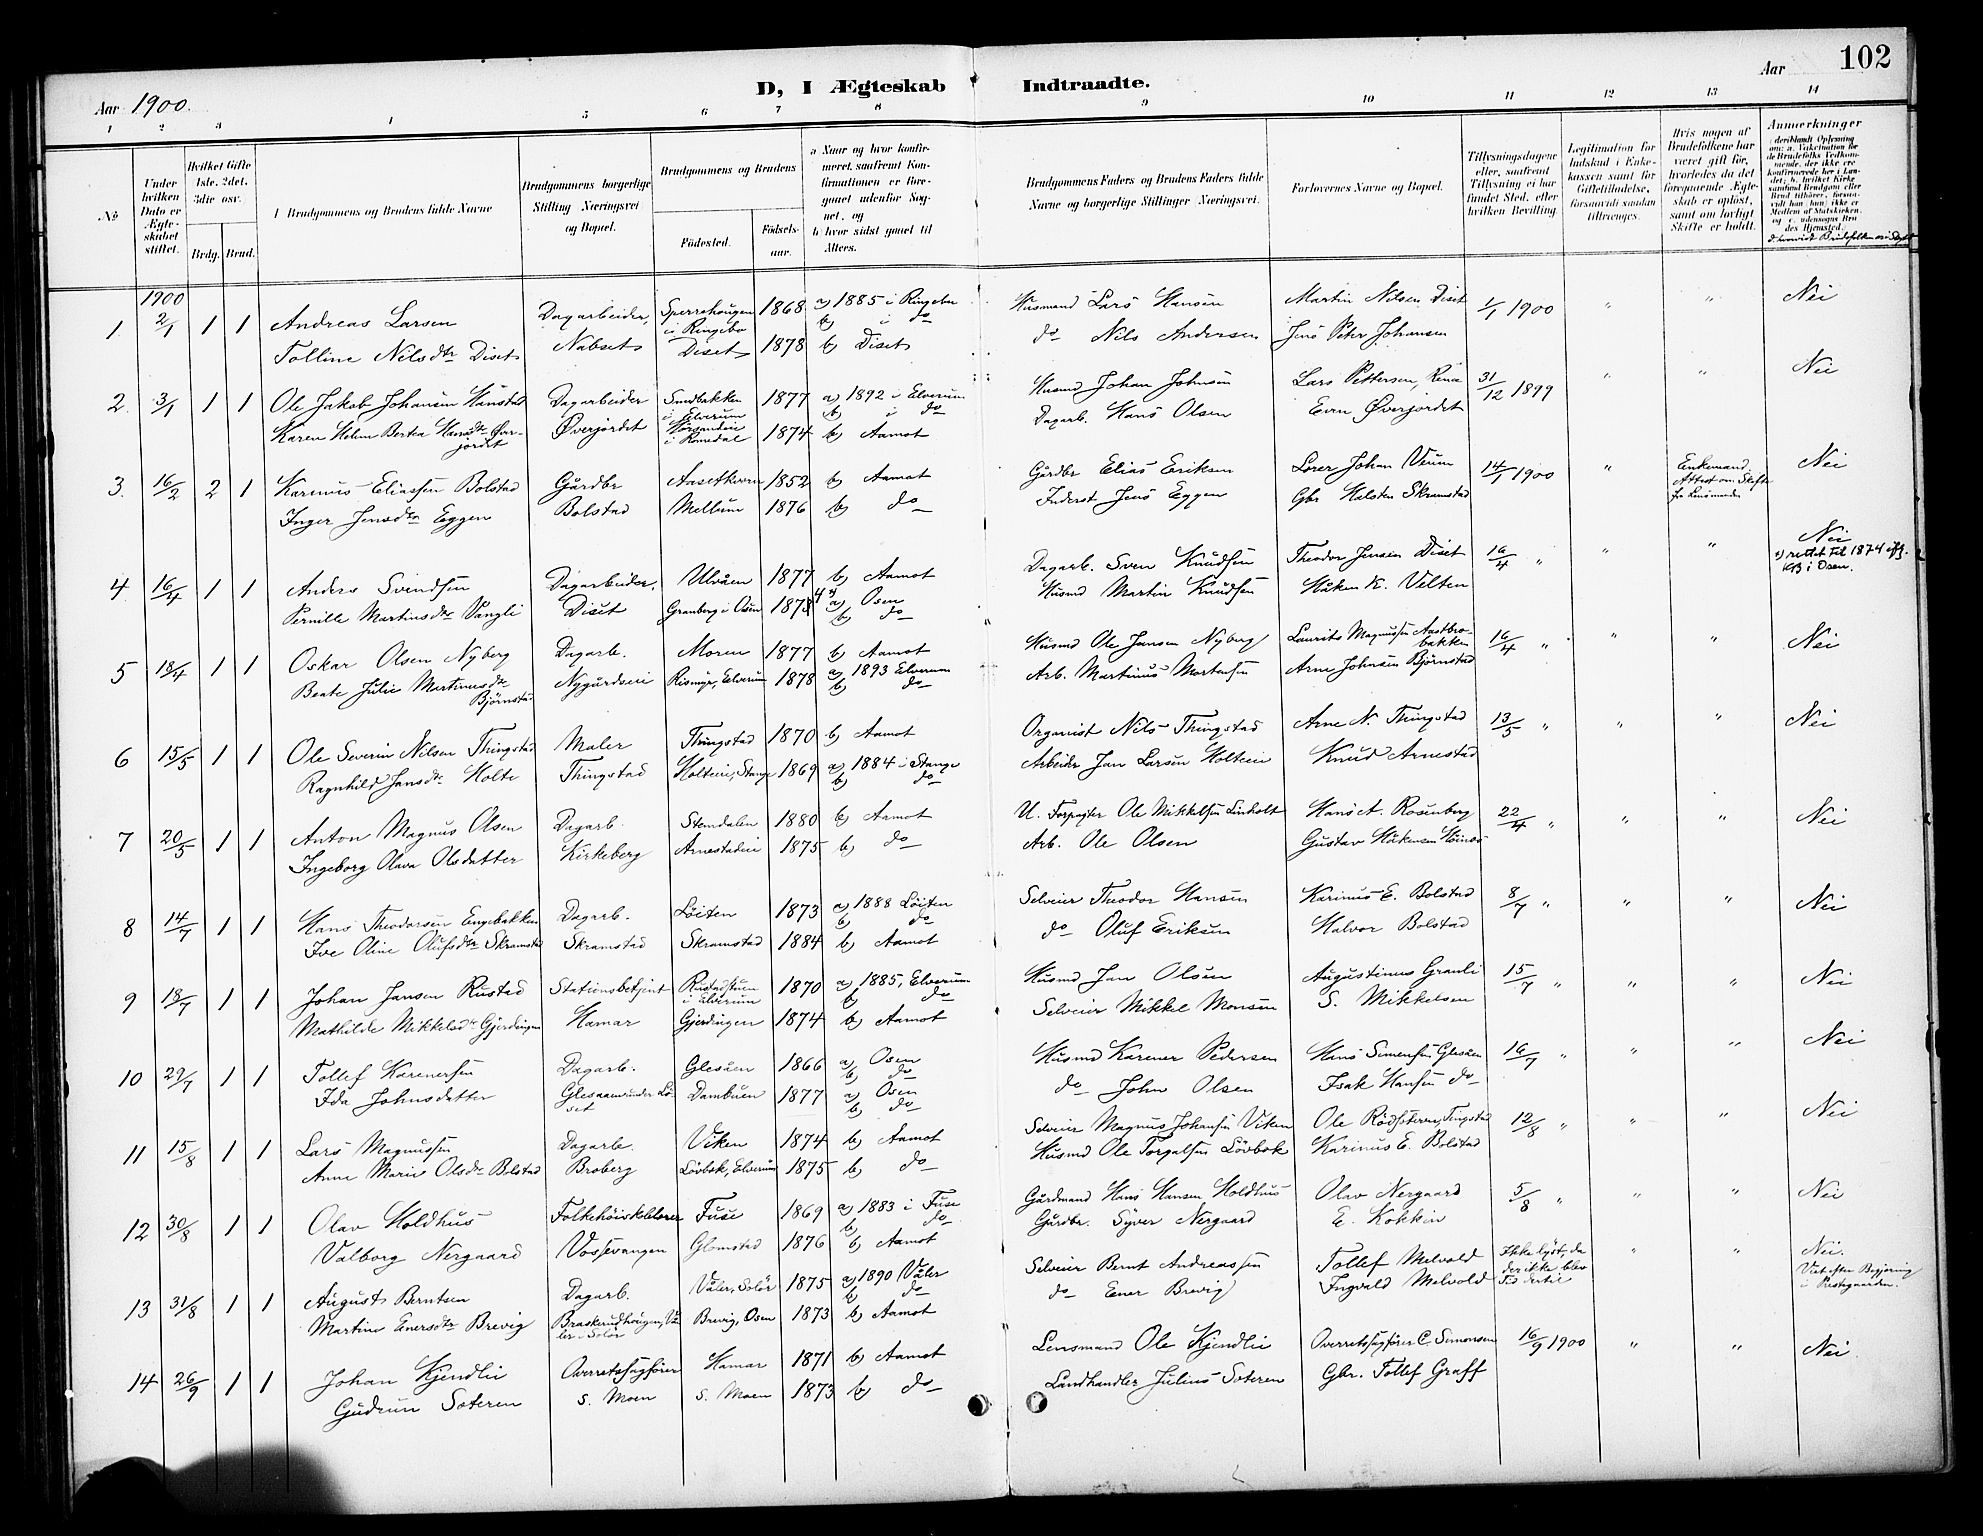 102
D, I Ægteskab Indtraadte.
Aar 1900. Aar
1 2 3 4 5 6 7 8 9 10 11 12 13 14
No
Under hvilken Dato er Ægteskabet stiftet.
Hvilket Gifte 1ste, 2det, 3die osv.
Brdg. Brud.
Brudgommens og Brudens fulde Navne
Brudgommens borgerlige Stilling Næringsvei og Bopæl.
Brudgommens og Brudens
Fødested. Fødselsaar.
a Naar og hvor konfirmeret, saafremt Konfirmationen er foregaaet udenfor Sognet, og
b hvor sidst gaaet til Alters.
Brudgommens Faders og Brudens Faders fulde Navne og borgerlige Stillinger (Næringsvei.
Forlovernes Navne og Bopæl.
Tillysningsdagene eller, saafremt Tillysning ei har fundet Sted, efter hvilken Bevilling.
Legitimation for Indskud i Enkekassen samt for Giftetilladelse, forsaavidt saadan tiltrænges.
Hvis nogen af Brudefolkene har været gift før, hvorledes da det foregaaende Ægteskab er opløst, samt om lovligt Skifte er holdt.
Anmerkninger
1900
1. 2/1 1 1 Andreas Larsen Dagarbeider, Sperrehaugen i Ringebo 1868 a) 1885 i Ringebu b) i do Husmand Lars Hansen Martin Nilsen, Diset 1/1 1900 " " Nei
Tolline Nilsdtr Diset Nabset Diset 1878 b) Diset do Nils Andersen Jens Peter Johansen
2. 3/1 1 1 Ole Jakob Johansen Hanstad Dagarbeider Sandbakken i Elverum 1877 a) 1892 i Elverum b) i do Husmd Johan Johnsen Lars Pettersen, Rena 31/12 1899 " " Nei
Karen Helene Bertea Hansdtr Øverjordet Øverjordet i Romedal 1874 b) Aamot Dagarb. Hans Olsen Even Øverjordet
3. 16/2 2 1 Karinus Eliassen Bolstad Gårdbr Aasetkvern 1852 b) Aamot Gårdbr Elias Eriksen Lærer Johan Veum 14/1 1900 " Enkemand Attest om Skifte fra Lensmanden Nei
Inger Jensdtr Eggen Bolstad Mellum 1876 b) do Inderst Jens Eggen Gbr Halsten Skramstad
4 16/4 1 1 Anders Svendsen Dagarbeider, Ulvåen 1877 b) Aamot Dagarb. Sven Knudsen Theodor Jensen Diset 16/4 " " " Nei
x) rettet til 1874 iflg. KB i Osen.
Pernille Martinsdtr Vangli Diset Granberg i Osen 1878 4 x) a) Osen b) do Husmd Martin Knudsen Håken K. Velten
5 18/4 1 1 Oskar Olsen Nyberg Dagarb. Moren 1877 b) Aamot Husmd Ole Jansen Nyberg Laurits Magnussen Aastbrobakken 16/4 " " " Nei
Beate Julie Martinusdtr Bjørnstad Nygårdseie Rismyr, Elverum 1878 a) 1893 Elverum b) do Arb. Martinus Mortensen Arne Johnsen Bjørnstad
6 15/5 1 1 Ole Severin Nilsen Thingstad Maler Thingstad 1870 b) Aamot Organist Nils Thingstad Arne N. Thingstad 13/5 " " " Nei
Ragnhild Jansdtr Holte Thingstad Holteeie, Stange 1869 a) 1884 i Stange b) do Arbeider Jan Larsen Holteeie Knud Arnestad
7 20/5 1 1 Anton Magnus Olsen Dagarb. Stendalen 1880 b) Aamot U. Forpagter Ole Mikkelsen Linholt Hans A. Rosenberg 22/4 " " " Nei
Ingeborg Olava Olsdatter Kirkeberg Arnestadeie 1875 b) do Arb. Ole Olsen Gustav Håkensen
8 14/7 1 1 Hans Theodorsen Engebakken Dagarb. Løiten 1873 a) 1888 Løiten b) do Selveier Theodor Hansen Karinus E. Bolstad 8/7 " " " Nei
Ive Oline Olufsdtr Skramstad Skramstad Skramstad 1884 b) Aamot do Oluf Eriksen Halvor Bolstad
9 18/7 1 1 Johan Jansen Rustad Stationsbetjent Rustadstuen i Elverum 1870 a) 1885, Elverum b) do Husmd Jan Olsen Augustinus Granli 15/7 " " " Nei
Mathilde Mikkelsdtr Gjerdingen Hamar Gjerdingen 1874 b) Aamot Selveier Mikkel Monsen S. Mikkelsen
10 29/7 1 1 Tollef Karenersen Dagarb. Glesåen 1866 a) Osen b) do Husmd Karener Pedersen Hans Simensen Glesåen 16/7 " " " Nei
Ida Johnsdatter Glesaaen under Løset Dambuen 1877 a) Osen b) do do John Olsen Isak Hansen do
11 15/8 1 1 Lars Magnussen Dagarb. Viken 1874 b) Aamot Selveier Magnus Johansen Viken Ole Rødsteren, Tingstad 12/8 " " " Nei
Anne Marie Olsdtr Bolstad Broberg Løvbek, Elverum 1875 b) do Husmd Ole Torgalsen Løvbek Karinus E. Bolstad
12 30/8 1 1 Olav Holdhus Folkehøiskolelærer Fuse 1869 a) 1883 i Fuse b) do Gårdmand Hans Hansen Holdhus Olav Nergaard 5/8 " " " Nei
Valborg Nergaard Vossevangen Glomstad 1876 b) Aamot Gårdbr. Syver Nergaard E. Kokkin
13 31/8 1 1 August Berntsen Dagarb. Våler, Solør 1875 a) 1890 Våler b) do Selveier Bernt Andreassen Tollef Melvold Ikke lyst, da der ikke blev Tid dertil " " Nei.
Viet efter Begjæring i Prestegaarden.
Martine Enersdtr Brevig Braskerudhaugen, Våler i Solør Brevig, Osen 1873 b) Aamot do Ener Brevig Ingvald Melvold
14 26/9 1 1 Johan Kjendlie Overretssagfører Hamar 1871 b) Aamot Lensmand Ole Kjendlie Overretssagfører C. Simonsen 16/9 1900 " " Nei
Gudrun Sæteren S. Moen S. Moen 1873 b) do Landhandler Julius Sæteren Gbr. Tollef Graff